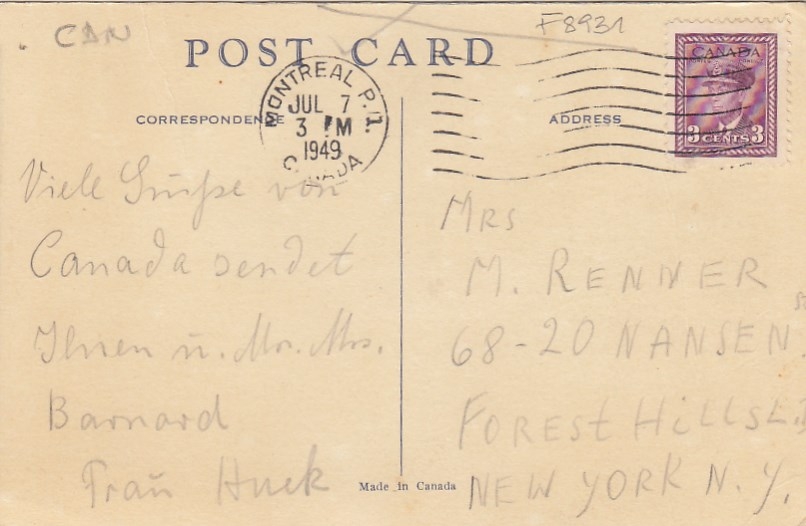 CAN
F8931
POST CARD
MONTREAL P.Q.
JUL 7
3 PM
1949
CANADA
CORRESPONDENCE
ADDRESS
CANADA
3 CENTS 3
Viele Grüße von
Canada sendet
Ihnen u. Mr. Mrs.
Barnard
Frau Huck
MRS
M. RENNER
68-20 NANSEN ST
FOREST HILLS L.I.
NEW YORK N.Y.
Made in Canada